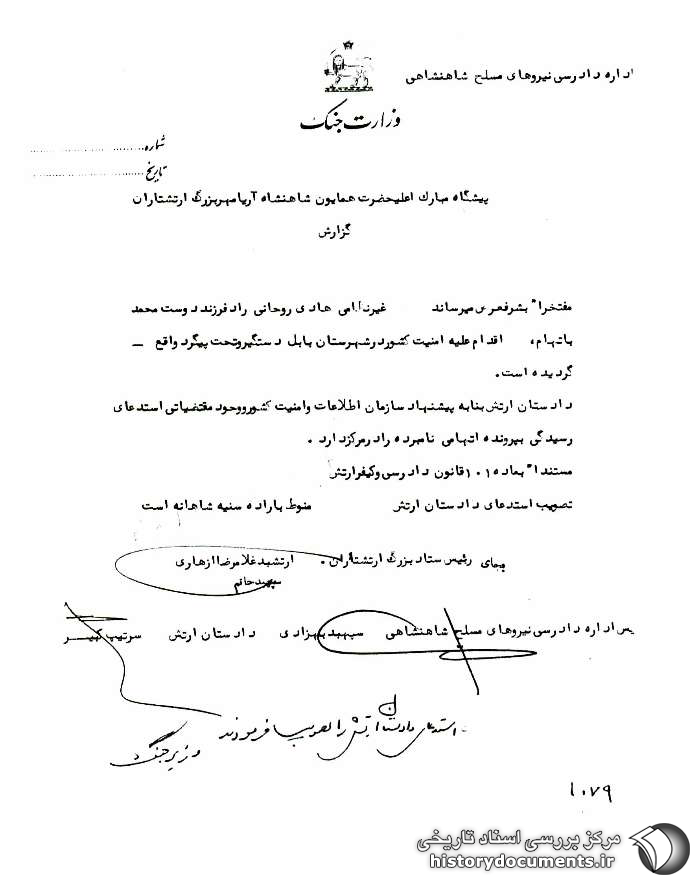 اداره دادرسی نیروهای مسلح شاهنشاهی
وزارت جنگ
شماره
تاریخ
پیشگاه مبارک اعلیحضرت همایون شاهنشاه آریامهر بزرگ ارتشتاران
گزارش
مفتخراً بشرفعرض میرساند غیرنظامی هادی روحانی راد فرزند دوست محمد
باتهام، اقدام علیه امنیت کشور در شهرستان بابل دستگیر و تحت پیگرد واقع –
گردیده است.
دادستان ارتش بنا به پیشنهاد سازمان اطلاعات و امنیت کشور و وجود مقتضیاتی استدعای
رسیدگی بپرونده اتهامی نامبرده را در مرکز دارد.
مستنداً بماده ۱۰۱ قانون دادرسی و کیفر ارتش
تصویب استدعای دادستان ارتش منوط باراده سنیه شاهانه است
بجای رئیس ستاد بزرگ ارتشتاران. ارتشبد غلامرضا ازهاری
سپهبد حاتم
یس اداره دادرسی نیروهای مسلح شاهنشاهی سپهبد بهزادی دادستان ارتش سرتیپ کبیر
استدعای دادستان ارتش را تصویب فرمودند
وزیر جنگ
۱۰۷۹
مرکز بررسی اسناد تاریخی
historydocuments.ir